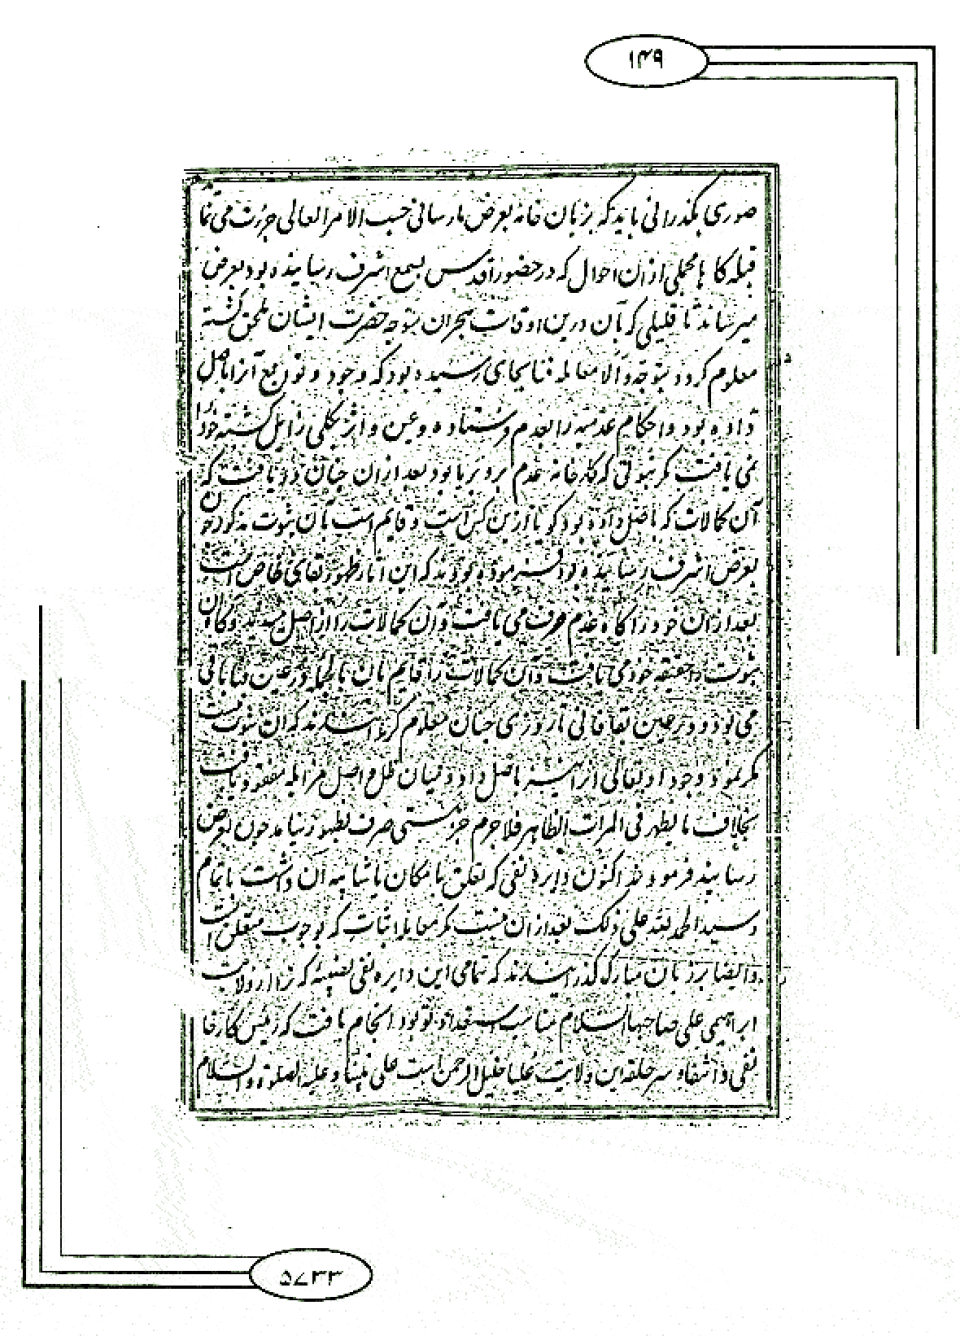 ۱۴۹
صوری بگذرانی باید که بزبان خامه بعرض ما رسانی حسب الامر العالی جرئت می نما
قبله کا با محلی ازان احوال که در حضور اقدس بسمع اشرف رسانیده بود بعرض
میرساند تا قلیلی که بآن درین اوقات هجران بتوجه حضرت ایشان ملحق گشته
معلوم کردد بتوجه والا معامله فنا بجای رسیده بود که وجود و توابع آنرا باصل
داده بود و احکام عدمیه را بعدم فرستاده و عین و اثر بکلی زایل گشته خود را
نمی یافت مگر ثبوتی که کارخانه عدم برو برپا بود بعد ازان چنان دریافت که
آن کمالات که باصل داده بود گویا ازین کس است و قایم است بآن ثبوت مذکور چون
بعرض اشرف رسانیده بود فرموده بودند که این آثار ظهور بقای خاص است
بعد ازان خود را گاه عدم صرف می یافت و آن کمالات را از اصل میدید و گاه آن
ثبوت را حقیقه خود می یافت و آن کمالات را قایم بآن بالجمله در عین فنا باقی
می بود و در عین بقا فانی تا روزی چنان معلوم کردانیدند که آن ثبوت
مگر نمود وجود او تعالی ازینه باصل داد و میان ظل و اصل مزایله مفقود یافت
بخلاف ما یظهر فی المرآت الظاهر فلاجرم جز نیستی صرف بظهور نیامد چون بعرض
رسانید فرمودند اکنون دایره نفی که تعلق بامکان یا شایبه آن داشت باتمام
رسید الحمد لله علی ذلک بعد ازان نیست مگر معامله اثبات که بوجوب متعلق است
و ایضا بر زبان مبارک گذرانیدند که تمامی این دایره نفی نصیبه که ترا از ولایت
ابراهیمی علی صاحبها السلام مناسب استعداد تو بود انجام یافت که رئیس کارخا
نفی و انتفا و سر حلقه این ولایت علیا خلیل الرحمن است علی نبینا و علیه الصلوة والسلام
۵۷۳۳